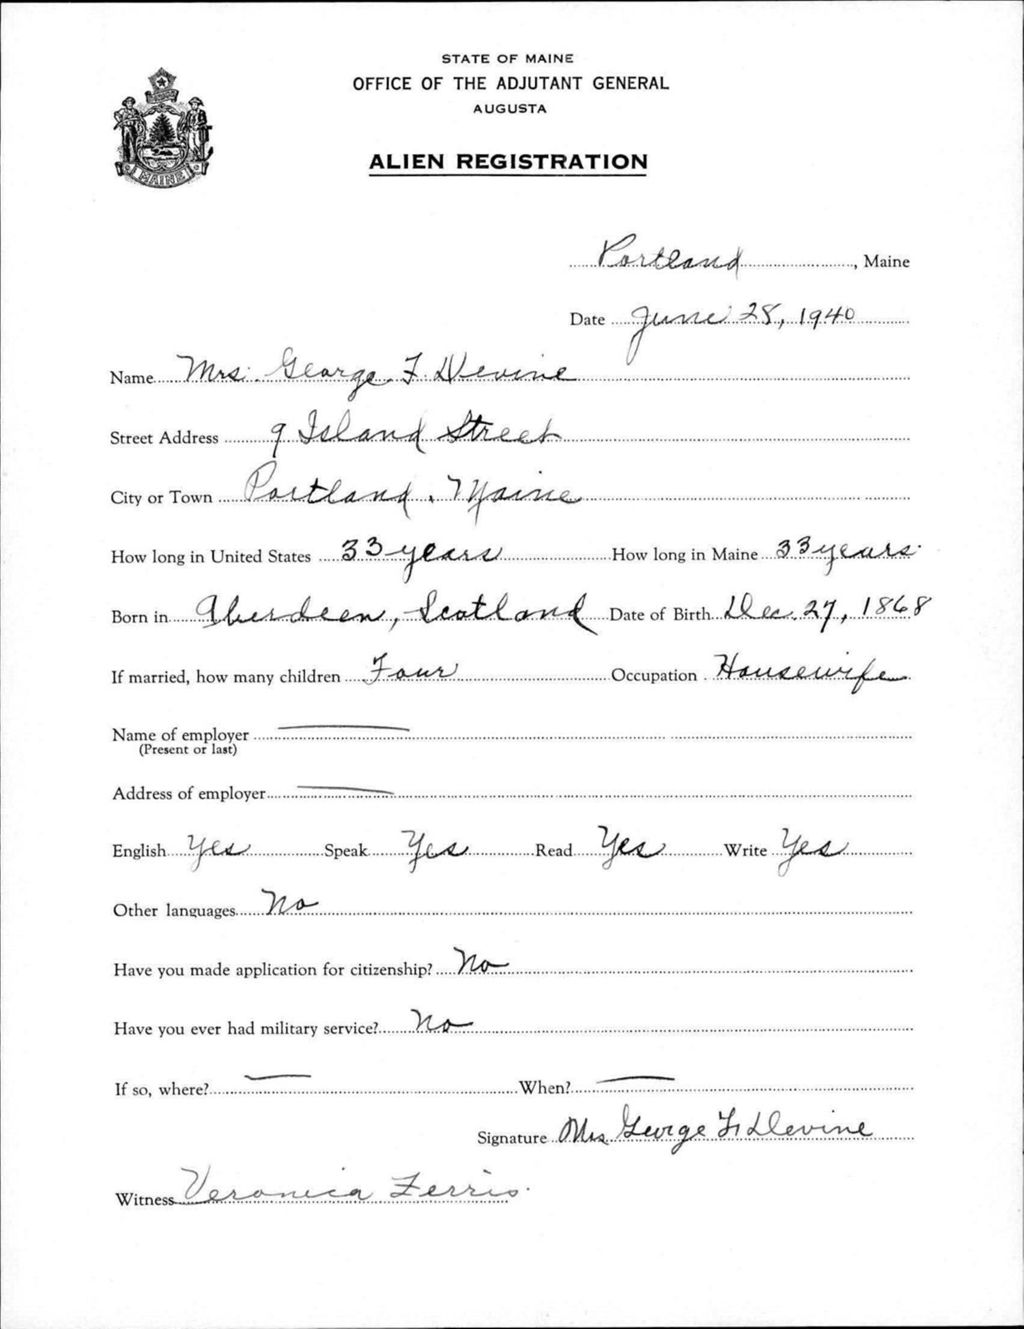 STATE OF MAINE
OFFICE OF THE ADJUTANT GENERAL
AUGUSTA
ALIEN REGISTRATION
MAINE
Portland, Maine
Date June 28, 1940
Name Mrs. George F. Devine
Street Address 9 Island Street
City or Town Portland, Maine
How long in United States 33 years How long in Maine 33 years
Born in Aberdeen, Scotland Date of Birth Dec. 27, 1868
If married, how many children Four Occupation Housewife
Name of employer
(Present or last)
Address of employer
English Yes Speak Yes Read Yes Write Yes
Other languages No
Have you made application for citizenship? No
Have you ever had military service? No
If so, where? When?
Signature Mrs. George F. Devine
Witness Veronica Ferris